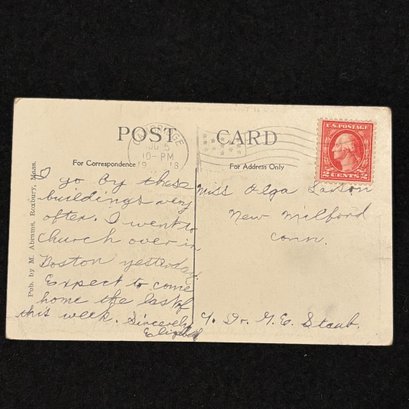 POST CARD
For Correspondence
For Address Only
10-PM
19 18
U.S. POSTAGE
2 CENTS 2
Pub. by M. Abrams, Roxbury, Mass.
I go by these
buildings very
often. I went to
church over in
Boston yesterday.
Expect to come
home the last of
this week. Sincerely
Miss Olga
New Milford
Conn.
c/o Dr. G.E. Staub.